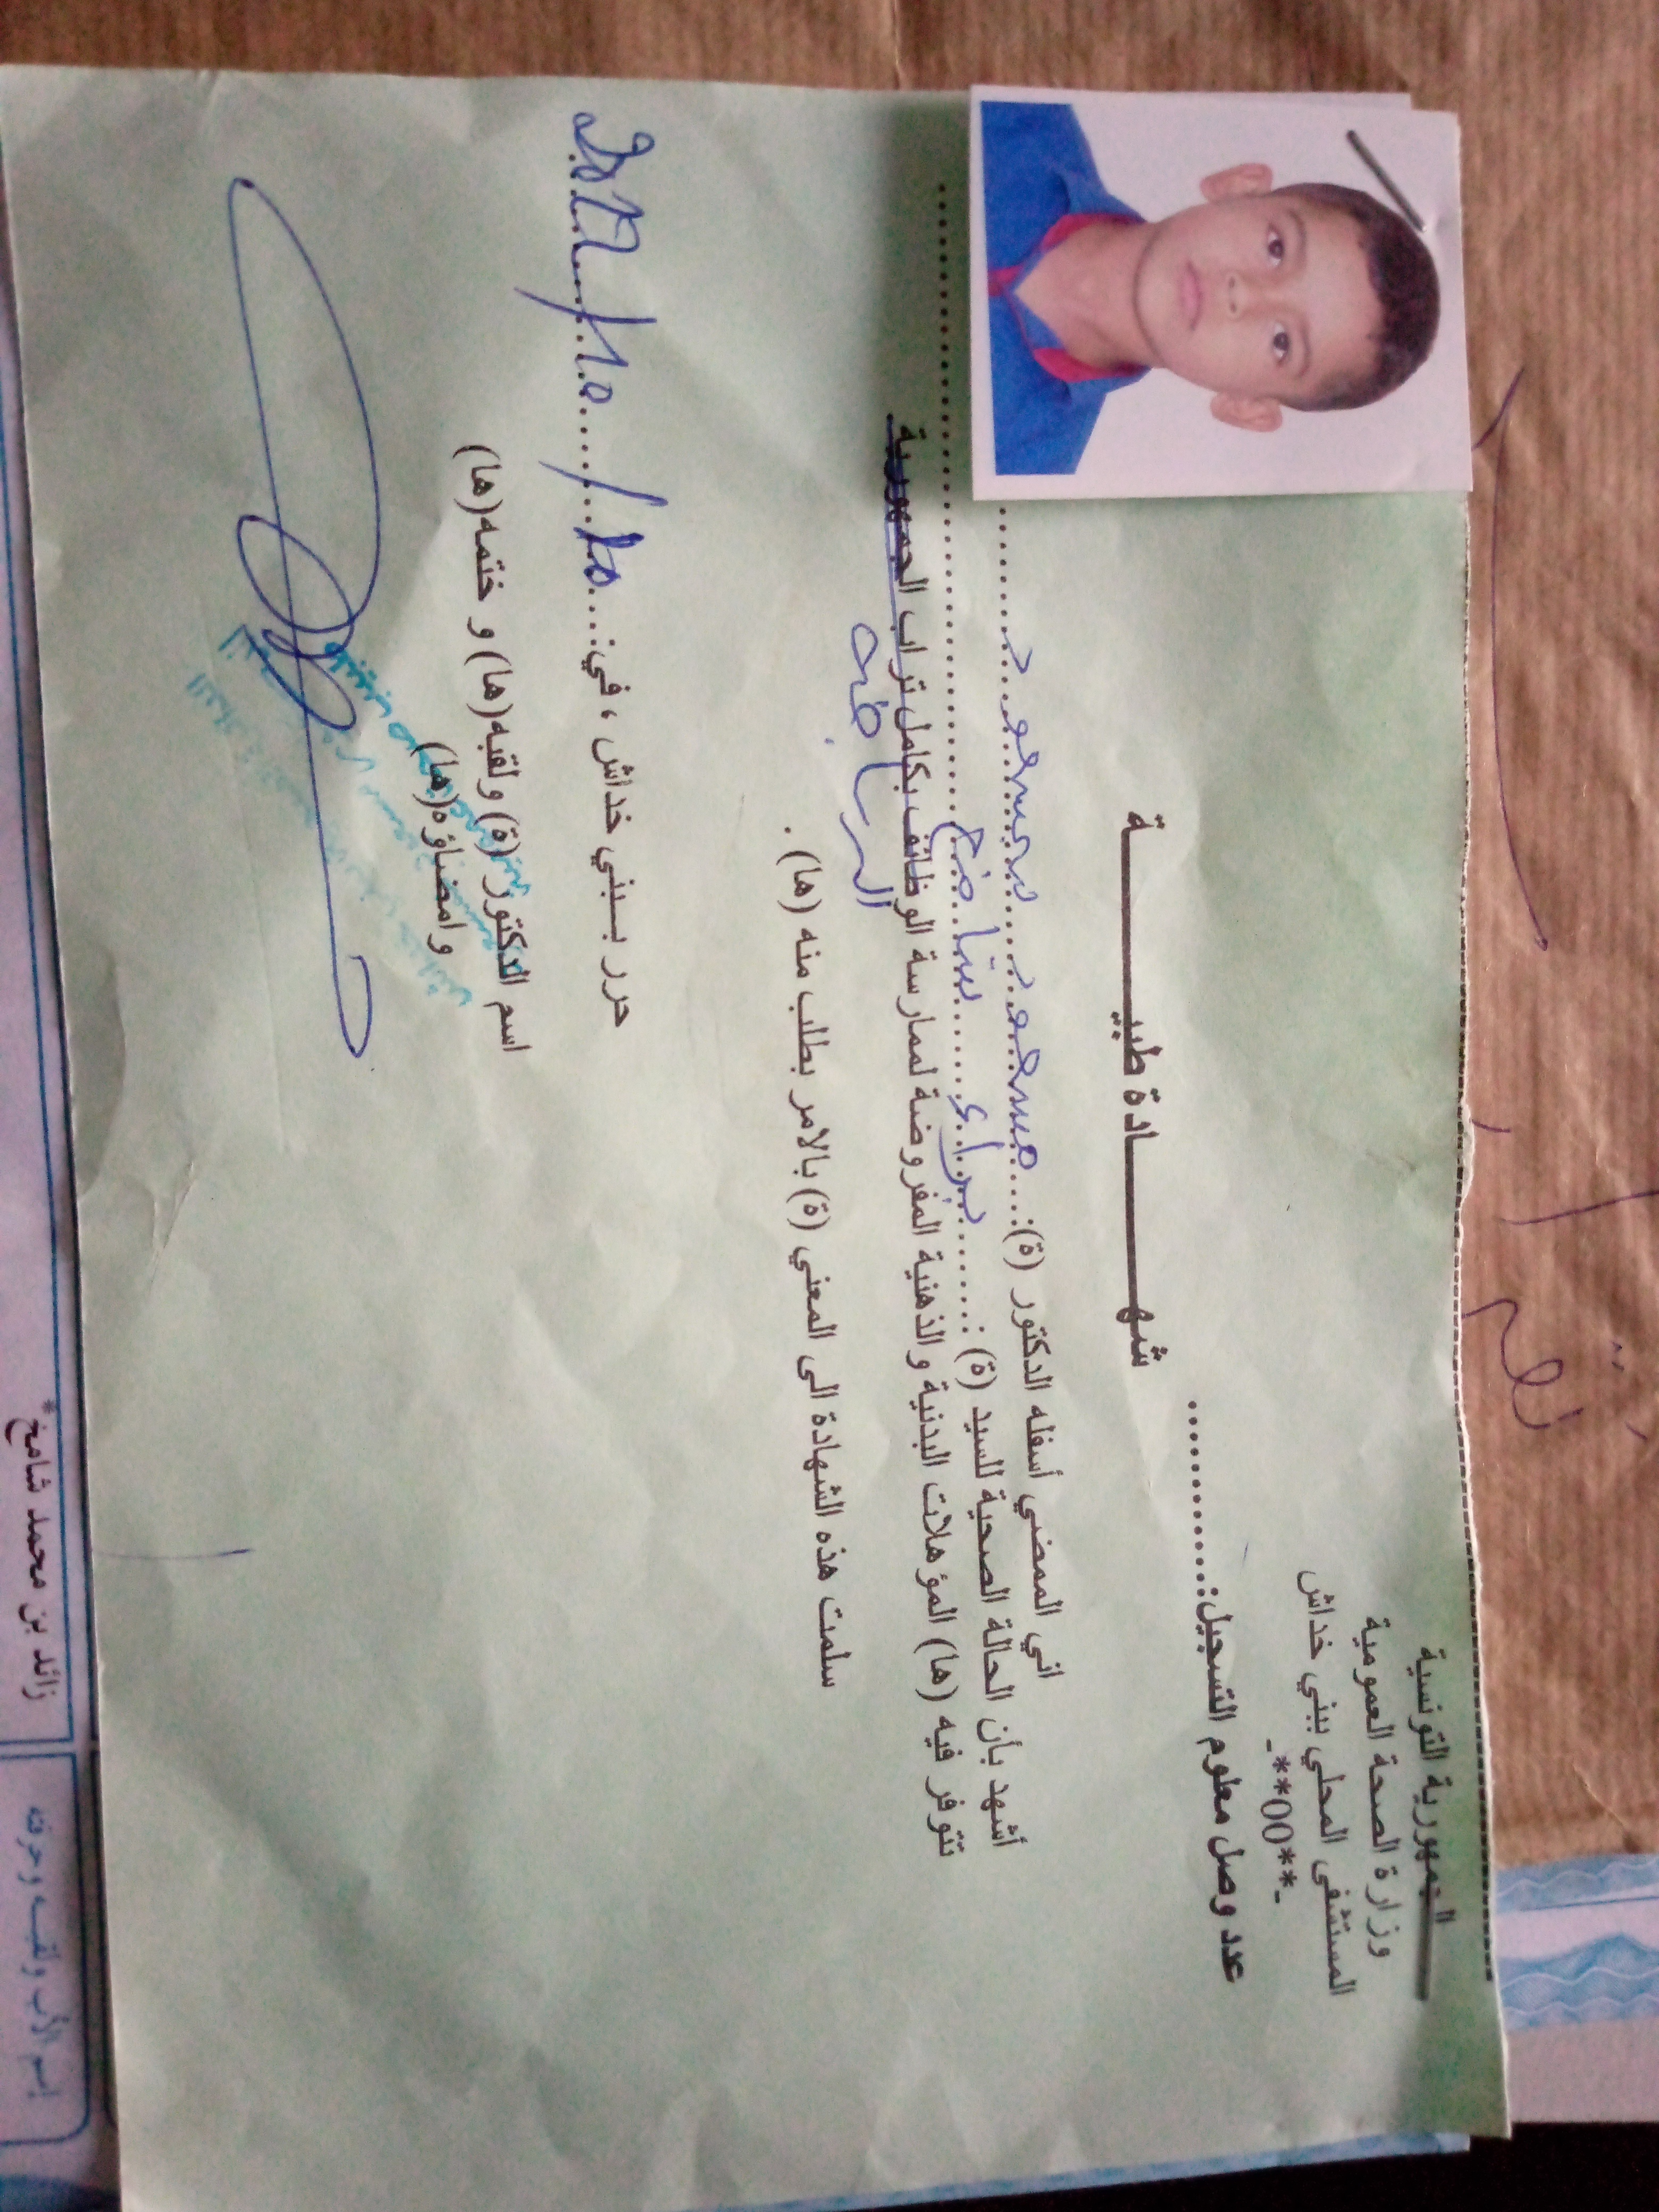 الجمهورية التونسية
وزارة الصحة العمومية
المستشفى المحلي ببني خداش
-**00**-
عدد وصل معلوم التسجيل:............
شهــــادة طبيــــة
اني الممضي أسفله الدكتور (ة): مسعود بن مسعود
أشهد بأن الحالة الصحية للسيد (ة) : براء شامخ
تتوفر فيه (ها) المؤهلات البدنية والذهنية المفروضة لممارسة الوظائف بكامل تراب الجمهورية
الرياضة
سلمت هذه الشهادة الى المعني (ة) بالامر بطلب منه (ها) .
حرر ببني خداش ، في:
اسم الدكتور (ة) ولقبه(ها) و ختمه(ها)
و امضاؤه(ها)
زائد بن محمد شامخ*
إسم الأب ولقبـه وحرفته